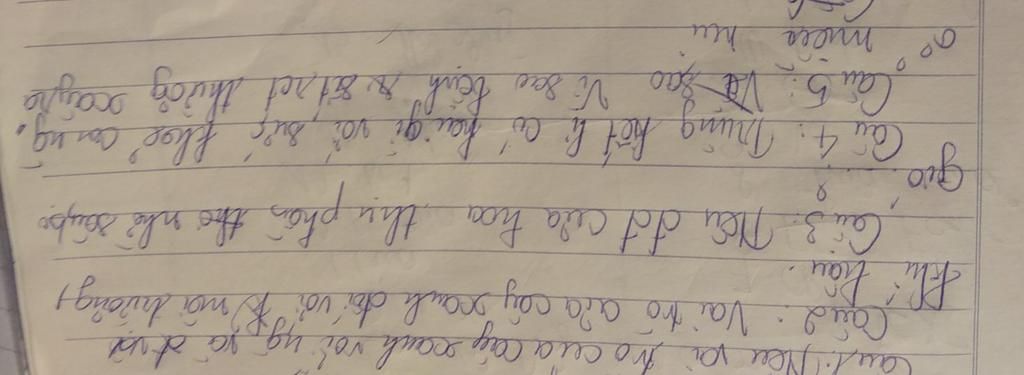 Câu 1: Nêu vai trò của cây xanh với ng và đ vật
Câu 2: Vai trò của cây xanh đối với môi trường,
khí hậu.
Câu 3: Nêu đđ của hoa thụ phấn nhờ sâu bọ
gió
Câu 4: Trùng kết lị có hại gì với sức khoẻ con ng.
Câu 5: Vì sao bệnh sốt rét thường xảy ra
ở miền núi